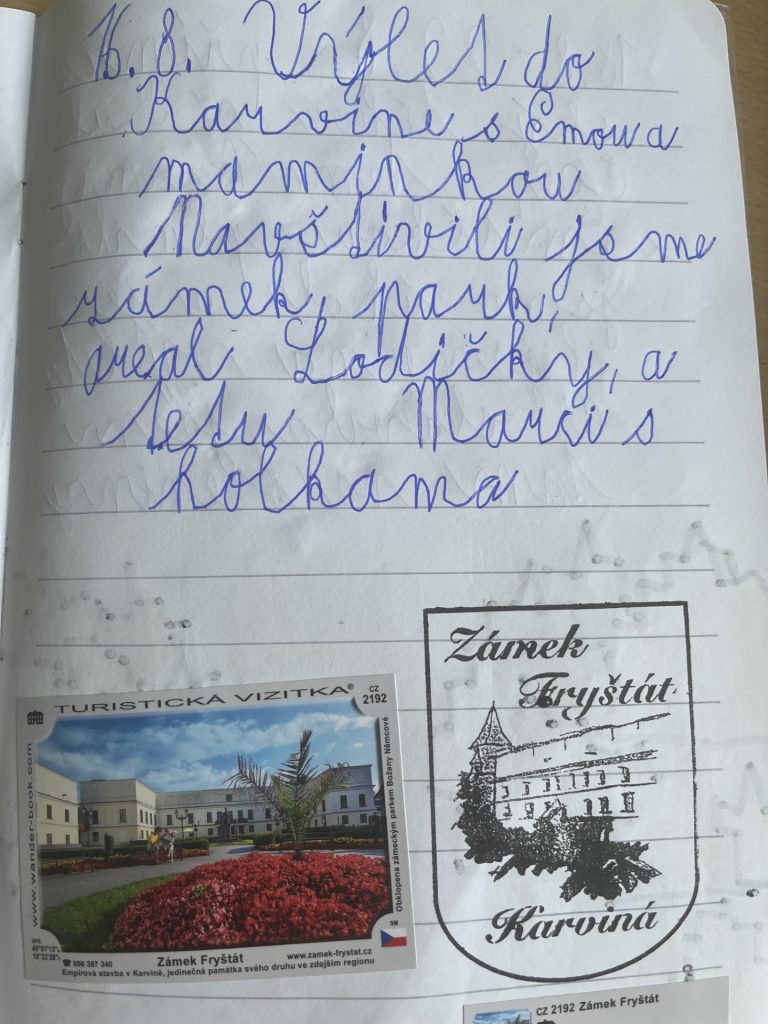 16. 8. Výlet do
Karvine s Emou a
maminkou
Navštivili jsme
zámek, park,
areal Lodičky, a
tetu Marci s
holkama
TURISTICKÁ VIZITKA®
CZ
2192
www.wander-book.com
Obklopena zámeckým parkem Boženy Němcové
GPS:
49°51'13"
18°32'28"
SM
☎ 596 387 340
Zámek Fryštát
www.zamek-frystat.cz
Empírová stavba v Karviné, jedinečná památka svého druhu ve zdejším regionu
Zámek
Fryštát
Karviná
CZ 2192 Zámek Fryštát